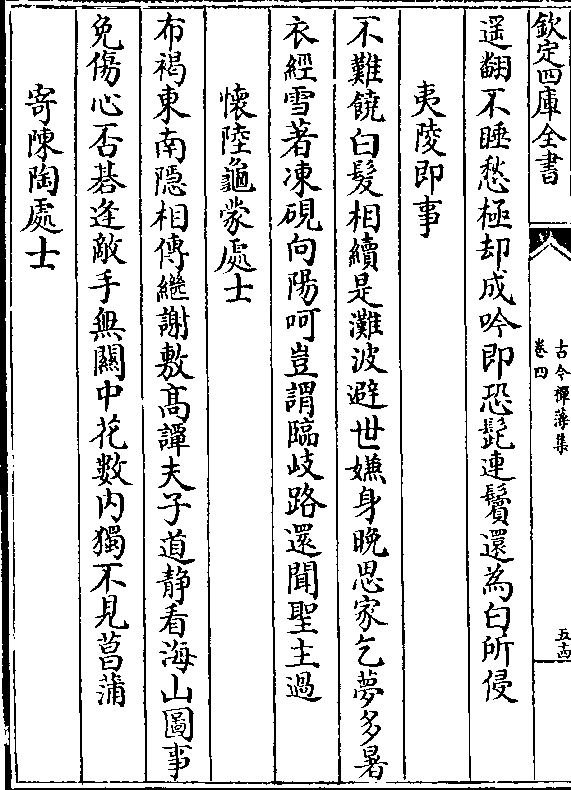 欽定四庫全書
古今禪藻集
卷四
五十四
遥翻不睡愁極却成吟即恐髭連鬢還為白所侵
夷陵即事
不難饒白髮相續是灘波避世嫌身晚思家乞夢多暑
衣經雪著凍硯向陽呵豈謂臨岐路還聞聖主過
懷陸龜蒙處士
布褐東南隠相傳繼謝敷髙譚夫子道静看海山圖事
免傷心否碁逢敵手無關中花數内獨不見菖蒲
寄陳陶處士